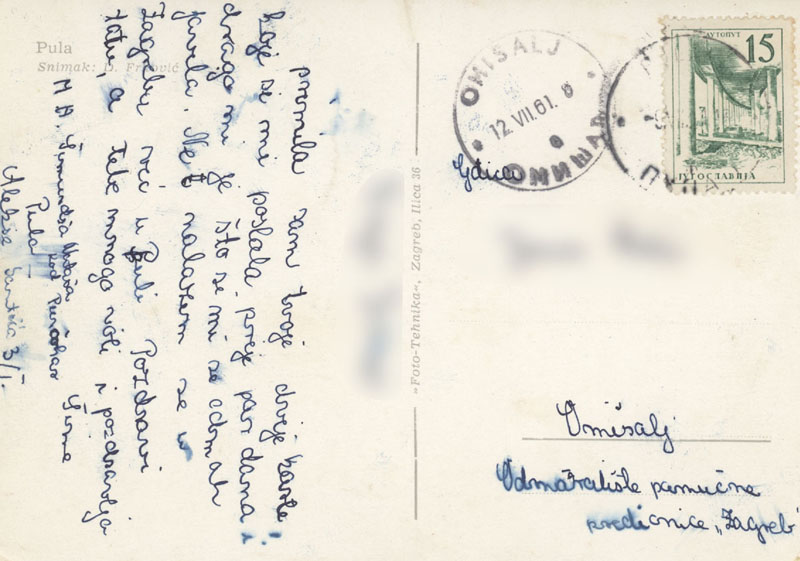 Pula
Snimak: D. Fr
primila sam tvoje dvije karte
koje si mi poslala prije par dana i
drago mi je što si mi se odmah
javila. Ne nalazim se u
Zagrebu već u Puli. Pozdravi
tatu, a tebe mnogo voli i pozdravlja
Pula kod
3/I.
"Foto-Tehnika", Zagreb, Ilica 36
OMIŠALJ
12.VII.61. 8
ОМИШАЉ
АУТОПУТ
15
ЈУГОСЛАВИЈА
Gđica
Omišalj
Odmaralište pamučne
predionice „Zagreb"